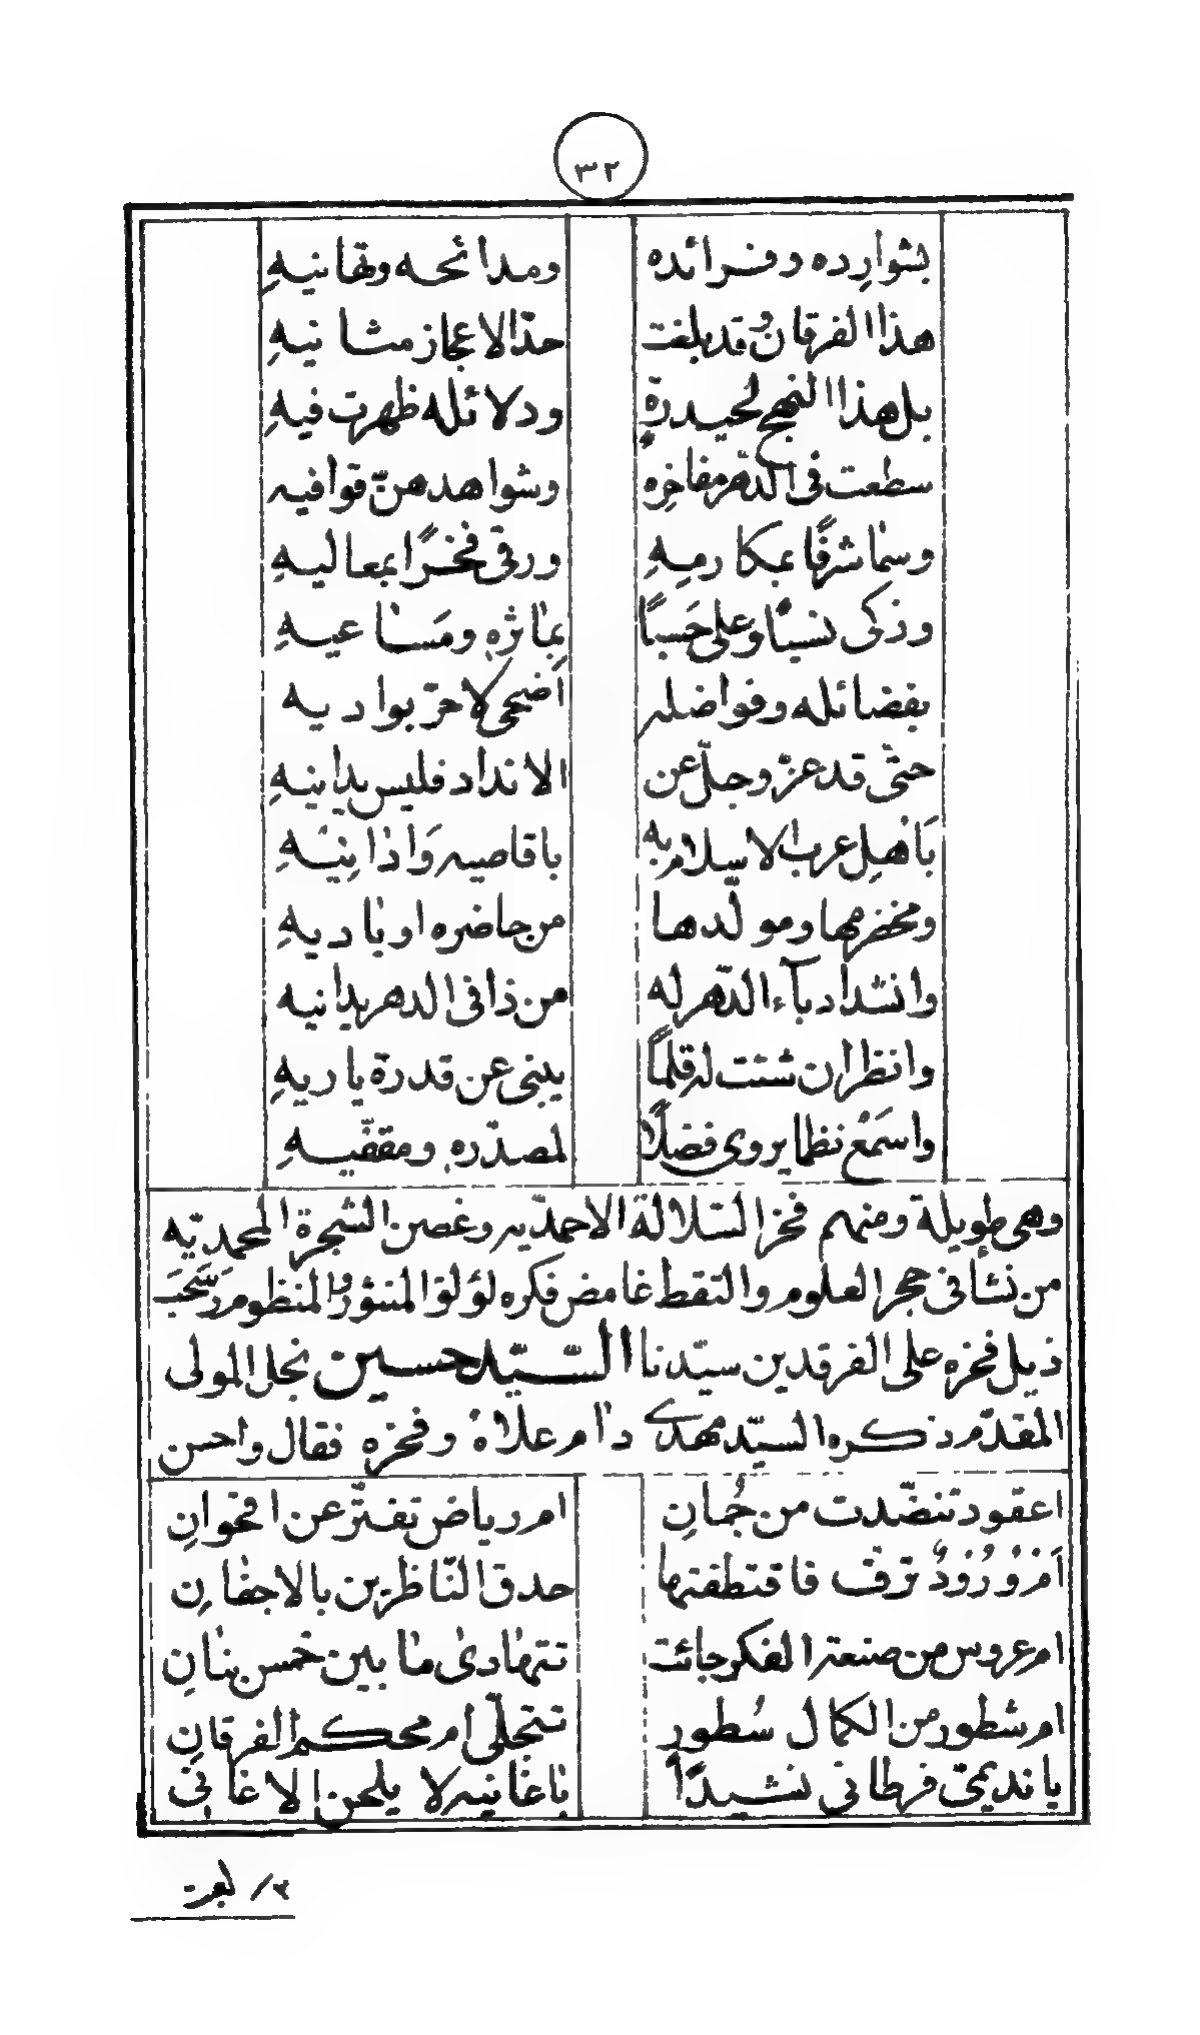 ٣٢
بشوارِده وفرائده ومدائحه وتهانيهِ
هذا الفرقانُ قد بلغت حدّ الاعجاز مثانيهِ
بل هذا النهج لحيدرةٍ ودلائله ظهرت فيهِ
سطعت فى الدّهر مفاخره وشواهدهنّ قوافيه
وسمٰا شرفًا بمكارمهِ ورقى فخرًا بمعاليهِ
وزكى نسبًا وعلى حَسبًا بِمٰاثره ومَسٰاعيهِ
بفضائله وفواضله اضحى كلا حرّ بواديه
حتّى قد عزّ وجلّ عن الانداد فليس يدانيهِ
يَا اهل عراب الاسلام به باقاصيه وَادٰانِيْهِ
ومخضرمها ومولّدها من حاضره او بٰاديهِ
وانشد ادبآء الدّهر له من ذا فى الدهر يدانيه
وانظر ان شئت له قلمًا ينبى عن قدرة باريهِ
واسمَعْ نظما يروى فضلًا لمصدّره ومقفّيهِ
وهى طويلة ومنهم فخر السّلالة الاحمديّه وغصن الشجرة المحمديّه
من نشأ فى حجر العلوم والتقط غامض فكره لؤلؤا لمنثور والمنظوم وسَحَبَ
ذيل فخره على الفرقدين سيّدنا السّيّد حسين نجل المولى
المقدّم ذكره السيّد مهدى دام علاهُ وفخره فقال واحسن
اعقود تنضّدت من جُمانِ ام رياض تفترّ عن اقحوانِ
اَمْ وُرُوْدٌ ترّفّ فاقتطفتها حدق النّاظرين بالاجفٰانِ
ام عروس من صنعة الفكر جائت تتهٰادىٰ مٰا بين خمس بنٰانِ
ام شطور من الكمال سُطورِ تتجلّى ام محكم الفرقانِ
يا نديمىّ قرطانى نشيدًا بٰاغانيه لا بلحن الاغانى
٣/ لعبت